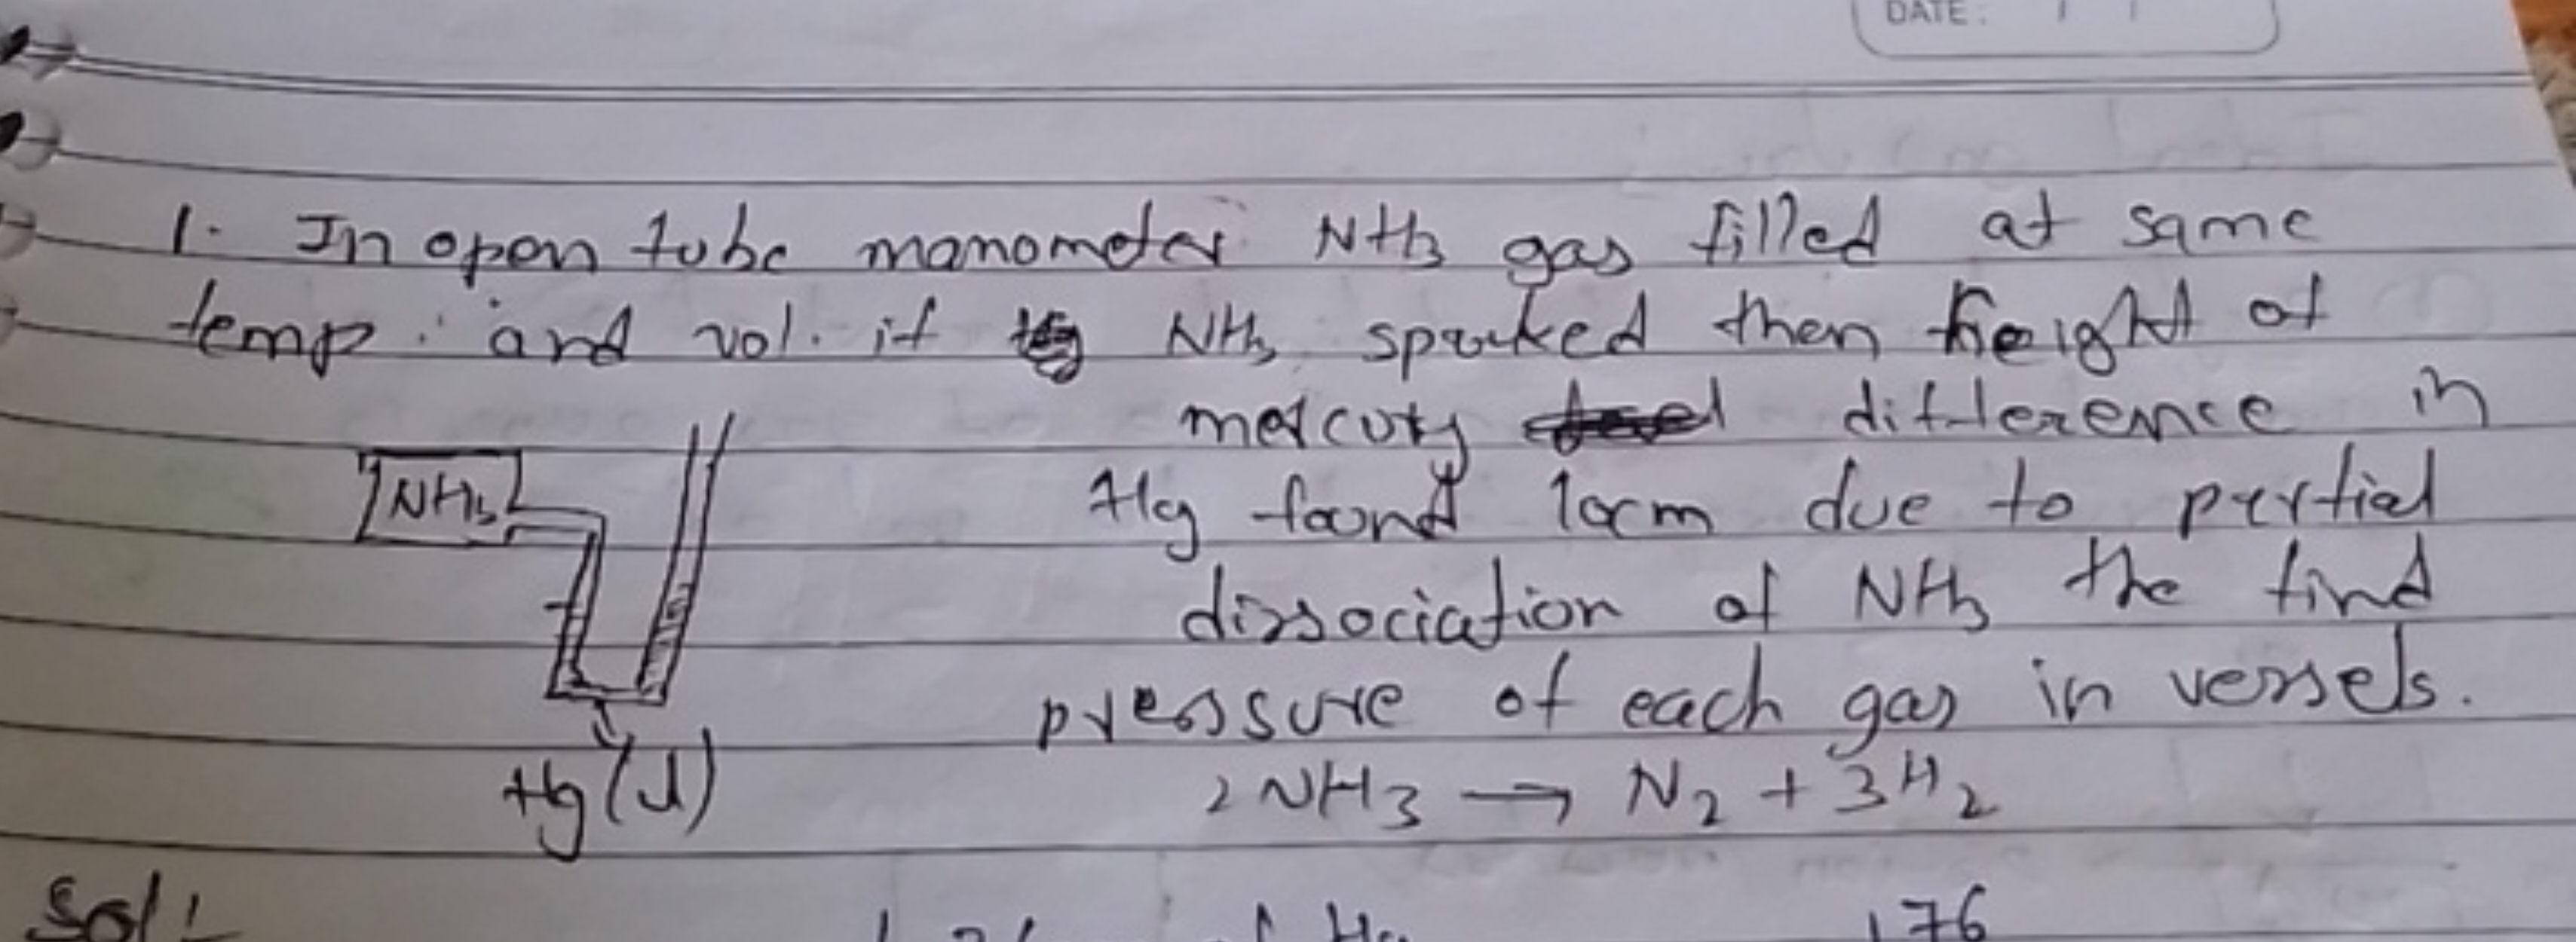 DATE: / /
1. In open tube manometer NH3 gas filled at same
temp. and vol. if NH3 sparked then height of
mercury difference in
Hg found 10cm due to partial
dissociation of NH3 the find
pressure of each gas in vessels.
NH3
Hg(l)
2NH3 → N2 + 3H2
Sol:-
76